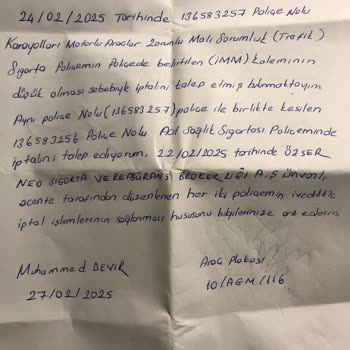 24/02/2025 Tarihinde 136583257 Poliçe Nolu
Karayolları Motorlu Araçlar Zorunlu Mali Sorumluluk (Trafik)
Sigorta Poliçemin Poliçede belirtilen (İMM) kaleminin
düşük olması sebebiyle iptalini talep etmiş bulunmaktayım.
Aynı poliçe Nolu (136583257) poliçe ile birlikte kesilen
136583256 Poliçe Nolu Acil Sağlık Sigortası Poliçeminde
iptalini talep ediyorum. 22/02/2025 tarihinde ÖZSER
NEO SİGORTA VE REASÜRANS BROKERLİĞİ A.Ş Ünvanlı
acente tarafından düzenlenen her iki poliçemin ivedilikle
iptal işlemlerinin sağlanması hususunu bilgilerinize arz ederim.
Muhammed DEVİR
Araç Plakası
27/02/2025
10/AGM/116